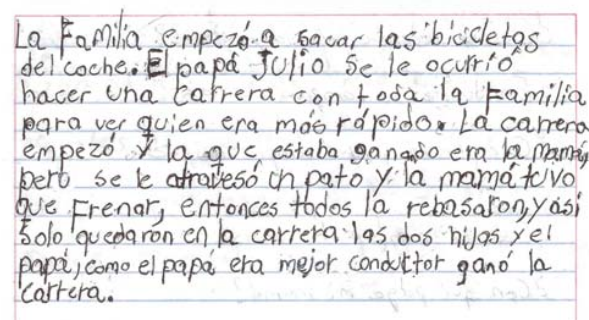 La Familia empezó a sacar las bicicletas
del coche. El papá Julio se le ocurrió
hacer una carrera con toda la Familia
para ver quien era más rápido. La carrera
empezó y la que estaba ganando era la mamá,
pero se le atravesó un pato y la mamá tuvo
que Frenar, entonces todos la rebasaron, y así
solo quedaron en la carrera las dos hijas y el
papá, como el papá era mejor conductor ganó la
carrera.